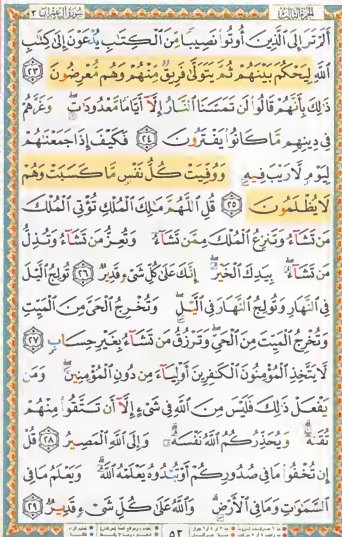 الجزء الثالث
سورة آل عمران ٣
أَلَمْ تَرَ إِلَى الَّذِينَ أُوتُوا نَصِيبًا مِّنَ الْكِتَٰبِ يُدْعَوْنَ إِلَىٰ كِتَٰبِ
اللَّهِ لِيَحْكُمَ بَيْنَهُمْ ثُمَّ يَتَوَلَّىٰ فَرِيقٌ مِّنْهُمْ وَهُم مُّعْرِضُونَ ٢٣
ذَٰلِكَ بِأَنَّهُمْ قَالُوا لَن تَمَسَّنَا النَّارُ إِلَّا أَيَّامًا مَّعْدُودَٰتٍ ۖ وَغَرَّهُمْ
فِي دِينِهِم مَّا كَانُوا يَفْتَرُونَ ٢٤ فَكَيْفَ إِذَا جَمَعْنَٰهُمْ
لِيَوْمٍ لَّا رَيْبَ فِيهِ وَوُفِّيَتْ كُلُّ نَفْسٍ مَّا كَسَبَتْ وَهُمْ
لَا يُظْلَمُونَ ٢٥ قُلِ اللَّهُمَّ مَٰلِكَ الْمُلْكِ تُؤْتِي الْمُلْكَ
مَن تَشَاءُ وَتَنزِعُ الْمُلْكَ مِمَّن تَشَاءُ وَتُعِزُّ مَن تَشَاءُ وَتُذِلُّ
مَن تَشَاءُ ۖ بِيَدِكَ الْخَيْرُ ۖ إِنَّكَ عَلَىٰ كُلِّ شَيْءٍ قَدِيرٌ ٢٦ تُولِجُ الَّيْلَ
فِي النَّهَارِ وَتُولِجُ النَّهَارَ فِي الَّيْلِ ۖ وَتُخْرِجُ الْحَيَّ مِنَ الْمَيِّتِ
وَتُخْرِجُ الْمَيِّتَ مِنَ الْحَيِّ ۖ وَتَرْزُقُ مَن تَشَاءُ بِغَيْرِ حِسَابٍ ٢٧
لَّا يَتَّخِذِ الْمُؤْمِنُونَ الْكَٰفِرِينَ أَوْلِيَاءَ مِن دُونِ الْمُؤْمِنِينَ ۖ وَمَن
يَفْعَلْ ذَٰلِكَ فَلَيْسَ مِنَ اللَّهِ فِي شَيْءٍ إِلَّا أَن تَتَّقُوا مِنْهُمْ
تُقَىٰةً ۗ وَيُحَذِّرُكُمُ اللَّهُ نَفْسَهُ ۗ وَإِلَى اللَّهِ الْمَصِيرُ ٢٨ قُلْ
إِن تُخْفُوا مَا فِي صُدُورِكُمْ أَوْ تُبْدُوهُ يَعْلَمْهُ اللَّهُ ۗ وَيَعْلَمُ مَا فِي
السَّمَٰوَٰتِ وَمَا فِي الْأَرْضِ ۗ وَاللَّهُ عَلَىٰ كُلِّ شَيْءٍ قَدِيرٌ ٢٩
٥٣